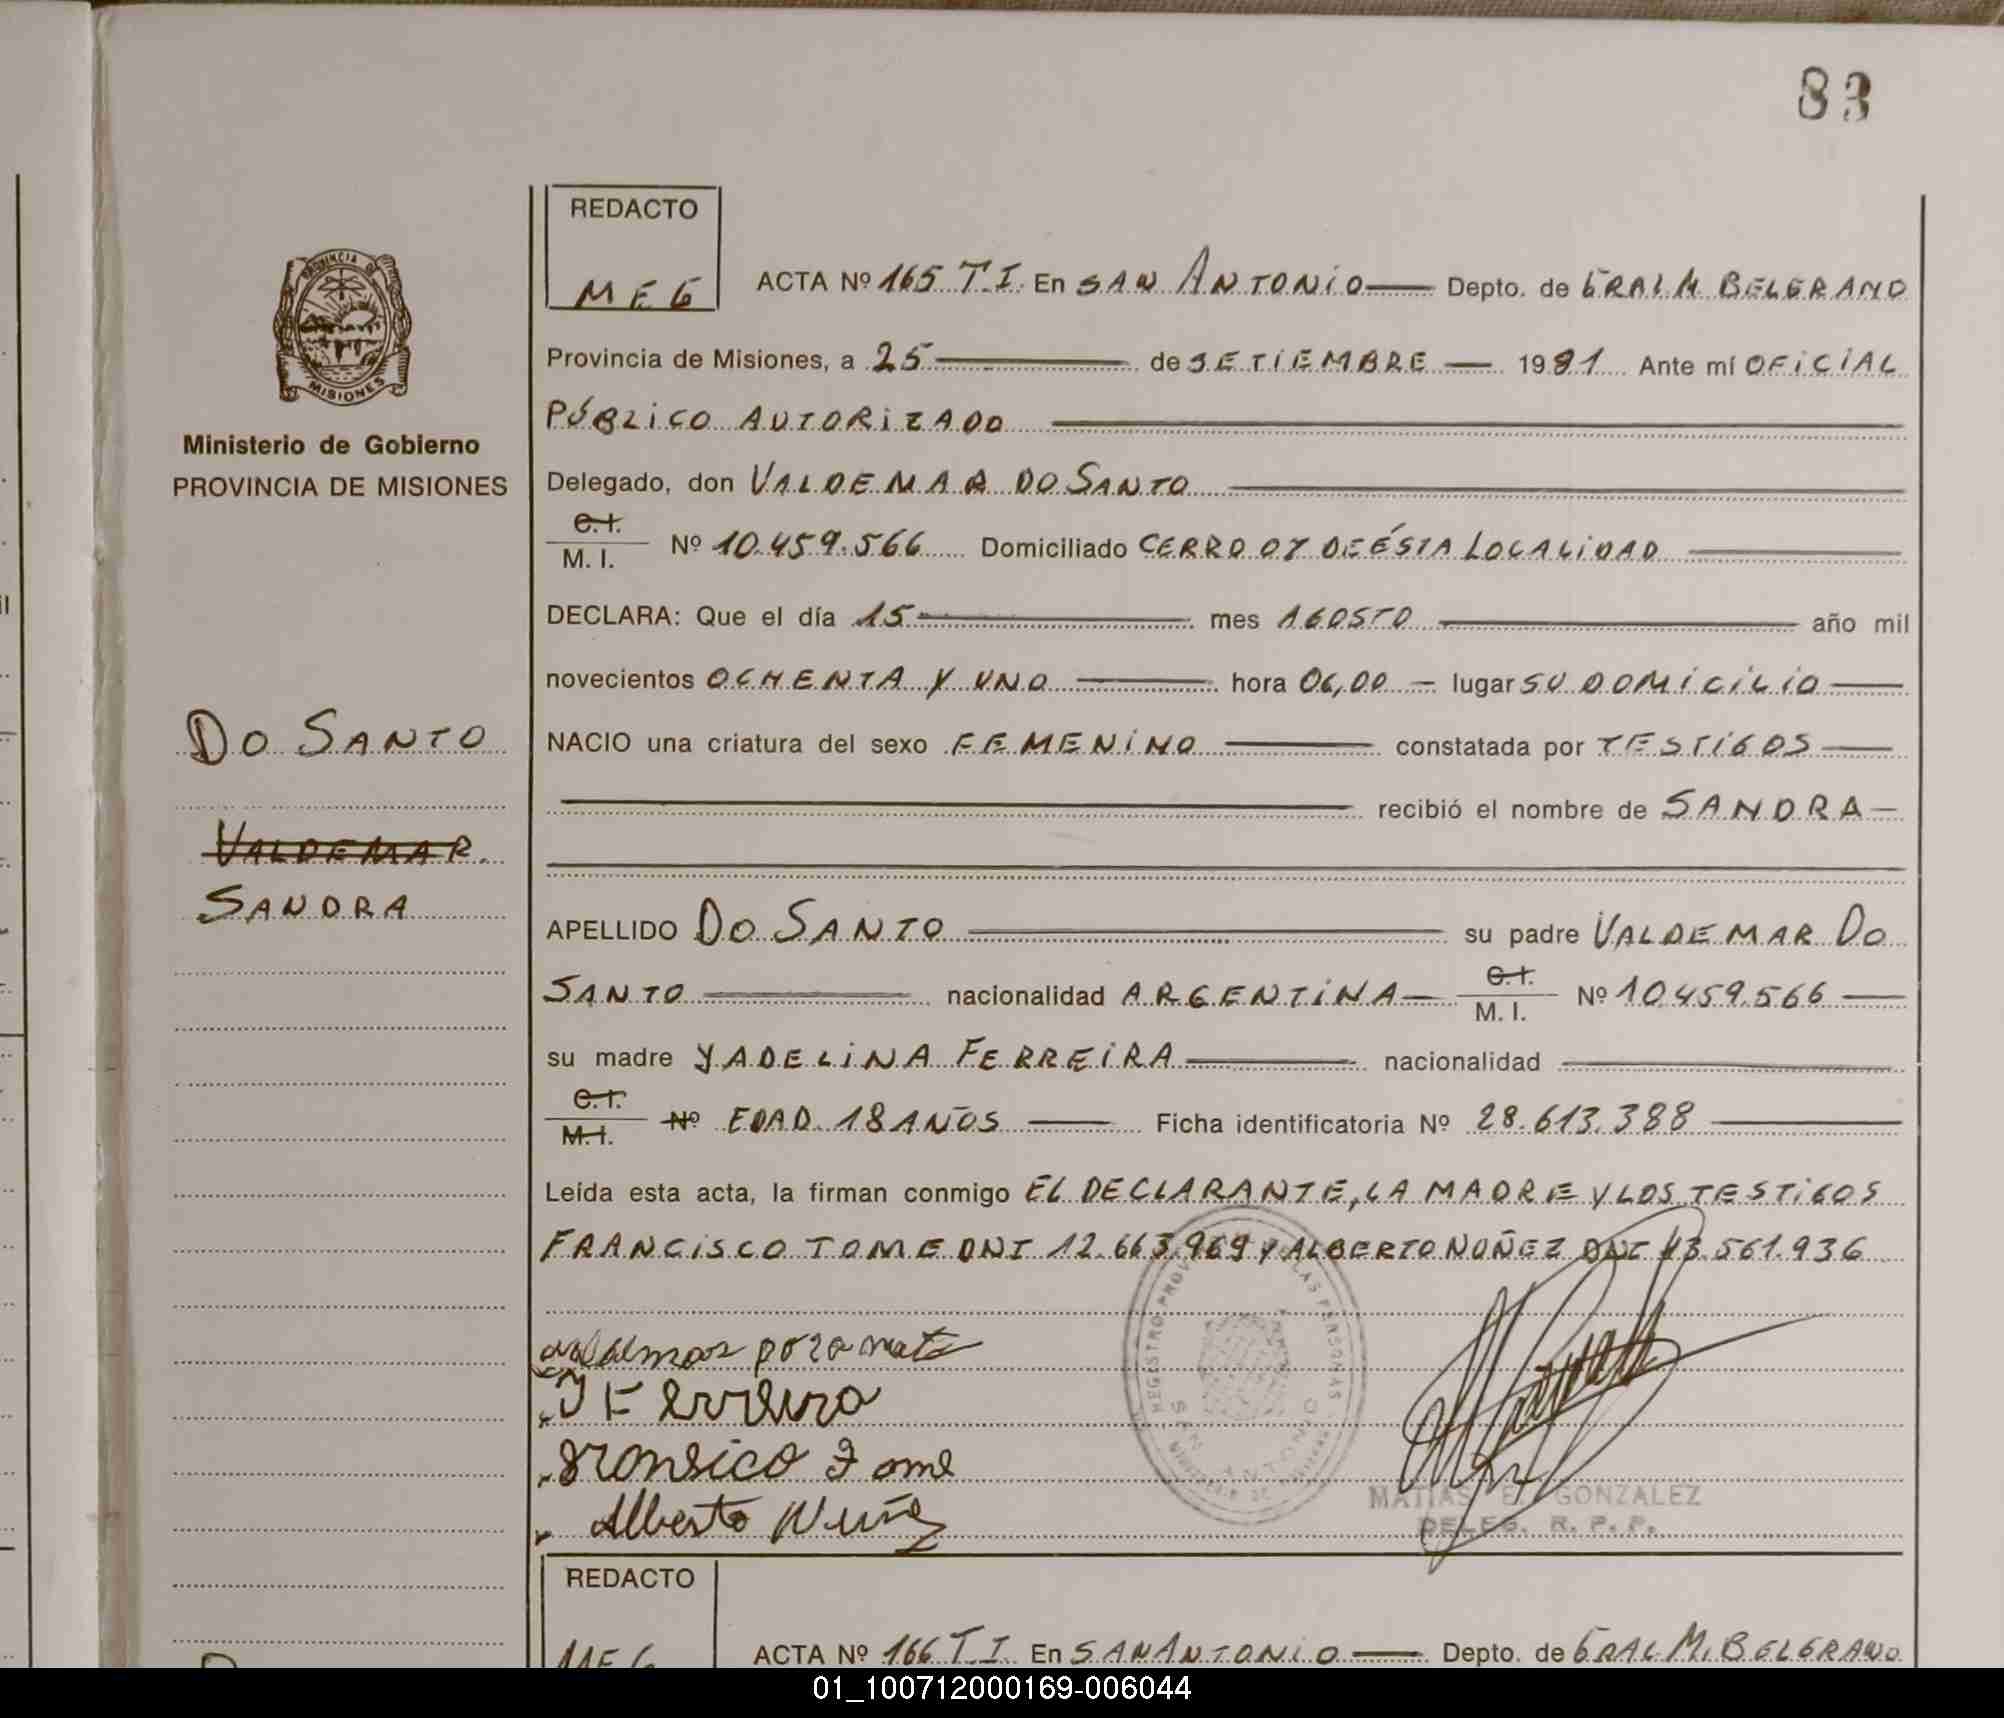 83
REDACTO
MEG
ACTA Nº 165 T.I. En SAN ANTONIO Depto. de GRAL M BELGRANO
Provincia de Misiones, a 25 de SETIEMBRE 1981 Ante mí OFICIAL
PÚBLICO AUTORIZADO
Delegado, don VALDEMAR DO SANTO
C.I.
M. I. Nº 10.459.566 Domiciliado CERRO 07 DE ÉSTA LOCALIDAD
DECLARA: Que el día 15 mes AGOSTO año mil
novecientos OCHENTA Y UNO hora 06,00 lugar SU DOMICILIO
NACIO una criatura del sexo FEMENINO constatada por TESTIGOS
recibió el nombre de SANDRA
APELLIDO DO SANTO su padre VALDEMAR DO
SANTO nacionalidad ARGENTINA C.I. M. I. Nº 10.459.566
su madre YADELINA FERREIRA nacionalidad
C.I.
M.I. Nº EDAD 18 AÑOS Ficha identificatoria Nº 28.613.388
Leída esta acta, la firman conmigo EL DECLARANTE, LA MADRE Y LOS TESTIGOS
FRANCISCO TOME DNI 12.663.969 Y ALBERTO NUÑEZ DNI 13.561.936
Y Ferreira
Fransico Tome
Alberto Nuñez
REGISTRO PROV LAS PERSONAS
SAN ANTONIO
MATIAS E. GONZALEZ
DELEG. R. P. P.
PROVINCIA DE
MISIONES
Ministerio de Gobierno
PROVINCIA DE MISIONES
DO SANTO
VALDEMAR
SANDRA
REDACTO
MEG
ACTA Nº 166 T.I. En SAN ANTONIO Depto. de GRAL M. BELGRANO
01_100712000169-006044